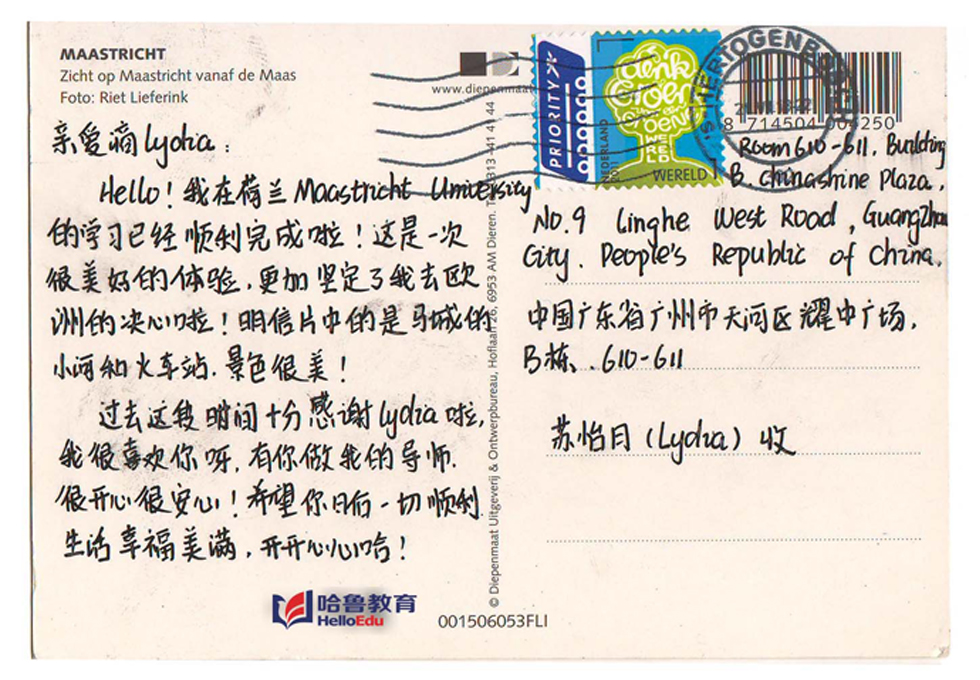 MAASTRICHT
Zicht op Maastricht vanaf de Maas
Foto: Riet Lieferink
亲爱滴Lydia：
Hello！我在荷兰Maastricht University
的学习已经顺利完成啦！这是一次
很美好的体验，更加坚定了我去欧
洲的决心啦！明信片中的是马城的
小河和火车站，景色很美！
过去这段时间十分感谢Lydia啦，
我很喜欢你呀，有你做我的导师，
很开心很安心！希望你日后一切顺利
生活幸福美满，开开心心哈！
哈鲁教育
HelloEdu
001506053FLI
© Diepenmaat Uitgeverij & Ontwerpbureau, Hoflaan 26, 6953 AM Dieren.
www.diepenmaat
PRIORITY
denk
Groen
WERELD
NEDERLAND
2011
WERELD
8 714504 004250
Room 610-611, Building
B, Chinashine Plaza,
No.9 Linghe West Road, Guangzhou
City. People's Republic of China.
中国广东省广州市天河区耀中广场，
B栋、610-611
苏怡月（Lydia）收